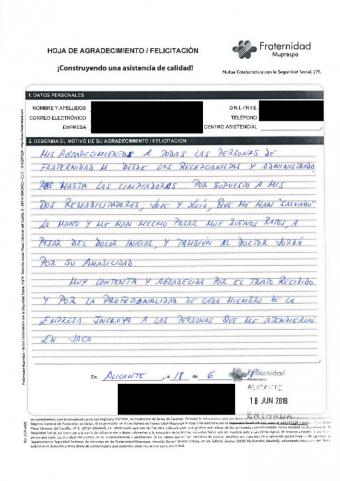 HOJA DE AGRADECIMIENTO / FELICITACIÓN
¡Construyendo una asistencia de calidad!
Fraternidad
Muprespa
Mutua Colaboradora con la Seguridad Social, 275
1. DATOS PERSONALES
NOMBRE Y APELLIDOS
D.N.I. / N.I.E.
CORREO ELECTRÓNICO
TELÉFONO
EMPRESA
CENTRO ASISTENCIAL
2. DESCRIBA EL MOTIVO DE SU AGRADECIMIENTO / FELICITACIÓN
MIS AGRADECIMIENTOS A TODAS LAS PERSONAS DE
FRATERNIDAD M DESDE LAS RECEPCIONISTAS Y ADMINISTRADO
HASTA LAS LIMPIADORAS POR SUPUESTO A MIS
DOS REHABILITADORES, JOSE Y LUIS, QUE ME HAN "SALVADO"
LA MANO Y ME HAN HECHO PASAR MUY BUENOS RATOS, A
PESAR DEL DOLOR INICIAL, Y TAMBIÉN AL DOCTOR JORDÁ
POR SU AMABILIDAD
MUY CONTENTA Y AGRADECIDA POR EL TRATO RECIBIDO
Y POR LA PROFESIONALIDAD DE CADA MIEMBRO DE LA
EMPRESA INCLUYO A LAS PERSONAS QUE ME ATENDIERON
EN JACA
En ALICANTE, 18 de 6
Fraternidad
ALICANTE
18 JUN 2018
ENTRADA